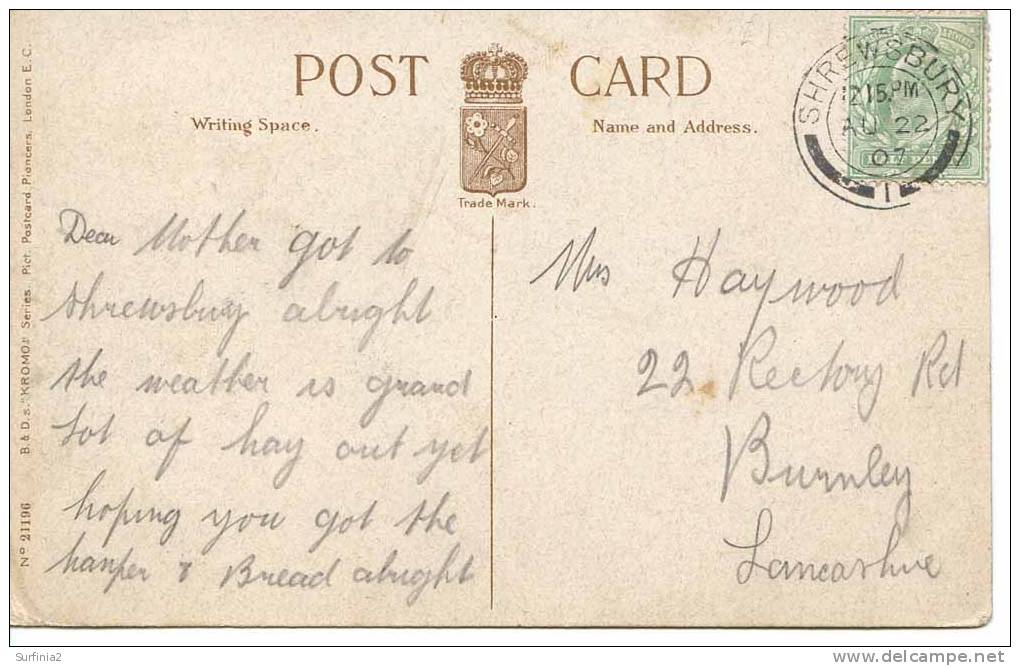 POST CARD
Writing Space.
Name and Address.
Trade Mark.
SHREWSBURY
12.15.PM
AU 22
07
Dear Mother got to
Shrewsbury alright
the weather is grand
Lot of hay out yet
hoping you got the
hamper & Bread alright
Mrs Haywood
22 Rectory Rd
Burnley
Lancashire
No 21196 B. & D. s. "KROMO" Series. Pict. Postcard Pioneers. London E.C.
Surfinia2
delcampe.net